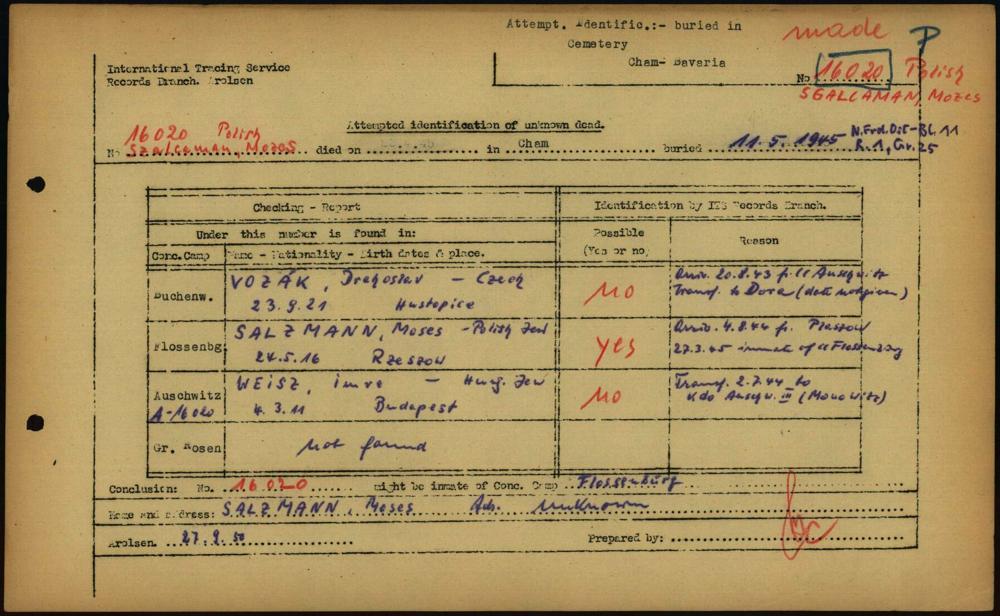 Attempt. Identific.:- buried in
Cemetery
Cham- Bavaria
made P
International Tracing Service
Records Branch. Arolsen
No 16020 Polish
SGALCAMAN, Mozes
Attempted identification of unknown dead.
16020 Polish
No Szalcaman, Mozes died on in Cham buried 11.5.1945 N.Frd.Ost-Bl. 11
R.1, Gr. 25
Checking - Report
Identification by ITS Records Branch.
Under this number is found in:
Possible
(Yes or no)
Reason
Conc.Camp Name - Nationality - Birth dates & place.
Buchenw. VOZÁK, Drahoslav - Czech
23.9.21 Hustopice
no
Arriv. 20.8.43 fr. CC Auschwitz
Transf. to Dora (date not given)
Flossenbg. SALZMANN, Moses - Polish Jew
24.5.16 Rzeszow
yes
Arriv. 4.8.44 fr. Plaszow
27.3.45 inmate of CC Flossenbürg
Auschwitz WEISZ, imre - Hung. Jew
A-16020 4.3.11 Budapest
no
Transf. 2.7.44 to
Kdo Auschw. III (Monowitz)
Gr. Rosen not found
Conclusion: No. 16020 might be inmate of Conc. Camp Flossenbürg
Name and address: SALZMANN, Moses Adr. unknown
Arolsen. 27.9.50 Prepared by: